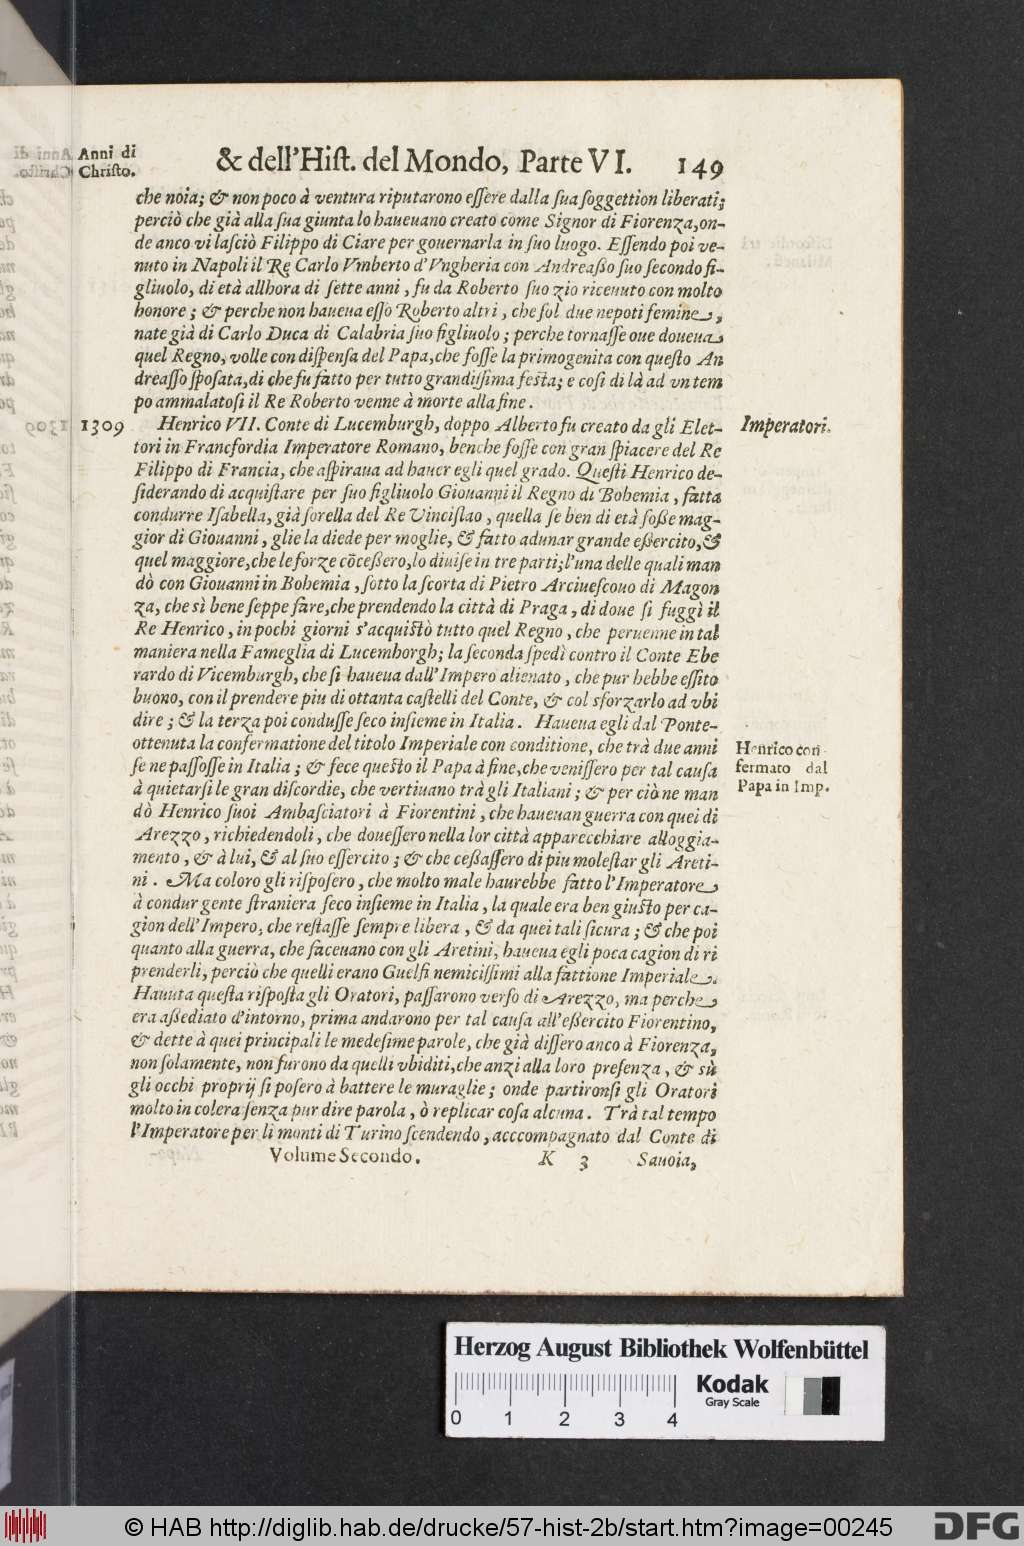 Anni di
Chriſto.
& dell'Hiſt. del Mondo, Parte VI. 149
che noia; & non poco à ventura riputarono eſſere dalla ſua ſoggettion liberati;
perciò che già alla ſua giunta lo haueuano creato come Signor di Fiorenza, on-
de anco vi laſciò Filippo di Ciare per gouernarla in ſuo luogo. Eſſendo poi ve-
nuto in Napoli il Re Carlo Vmberto d'Vngheria con Andreaßo ſuo ſecondo fi-
gliuolo, di età allhora di ſette anni, fu da Roberto ſuo zio riceuuto con molto
honore; & perche non haueua eſſo Roberto altri, che ſol due nepoti femine,
nate già di Carlo Duca di Calabria ſuo figliuolo; perche tornaſſe oue doueua
quel Regno, volle con diſpenſa del Papa, che foſſe la primogenita con queſto An
dreaſſo ſpoſata, di che fu fatto per tutto grandiſſima feſta; e coſi di là ad vn tem
po ammalatoſi il Re Roberto venne à morte alla fine.
1309 Henrico VII. Conte di Lucemburgh, doppo Alberto fu creato da gli Elet-
Imperatori.
tori in Francfordia Imperatore Romano, benche foſſe con gran ſpiacere del Re
Filippo di Francia, che aſpiraua ad hauer egli quel grado. Queſti Henrico de-
ſiderando di acquiſtare per ſuo figliuolo Giouanni il Regno di Bohemia, fatta
condurre Iſabella, già ſorella del Re Vinciſlao, quella ſe ben di età foße mag-
gior di Giouanni, glie la diede per moglie, & fatto adunar grande eßercito, &
quel maggiore, che le forze cõceßero, lo diuiſe in tre parti; l'una delle quali man
dò con Giouanni in Bohemia, ſotto la ſcorta di Pietro Arciueſcouo di Magon
za, che sì bene ſeppe fare, che prendendo la città di Praga, di doue ſi fuggì il
Re Henrico, in pochi giorni s'acquiſtò tutto quel Regno, che peruenne in tal
maniera nella Fameglia di Lucemhorgh; la ſeconda ſpedì contro il Conte Ebe
rardo di Vicemburgh, che ſi haueua dall'Impero alienato, che pur hebbe eſſito
buono, con il prendere piu di ottanta caſtelli del Conte, & col sforzarlo ad vbi
dire; & la terza poi conduſſe ſeco inſieme in Italia. Haueua egli dal Ponte-
ottenuta la confermatione del titolo Imperiale con conditione, che trà due anni
Henrico con
fermato dal
Papa in Imp.
ſe ne paſſoſſe in Italia; & fece queſto il Papa à fine, che veniſſero per tal cauſa
à quietarſi le gran diſcordie, che vertiuano trà gli Italiani; & per ciò ne man
dò Henrico ſuoi Ambaſciatori à Fiorentini, che haueuan guerra con quei di
Arezzo, richiedendoli, che doueſſero nella lor città apparecchiare alloggia-
mento, & à lui, & al ſuo eſſercito; & che ceßaſſero di piu moleſtar gli Areti-
ni. Ma coloro gli riſpoſero, che molto male haurebbe fatto l'Imperatore
à condur gente ſtraniera ſeco inſieme in Italia, la quale era ben giuſto per ca-
gion dell'Impero, che reſtaſſe ſempre libera, & da quei tali ſicura; & che poi
quanto alla guerra, che faceuano con gli Aretini, haueua egli poca cagion di ri
prenderli, perciò che quelli erano Guelfi nemiciſſimi alla fattione Imperiale.
Hauuta queſta riſpoſta gli Oratori, paſſarono verſo di Arezzo, ma perche
era aßediato d'intorno, prima andarono per tal cauſa all'eßercito Fiorentino,
& dette à quei principali le medeſime parole, che già diſſero anco à Fiorenza,
non ſolamente, non furono da quelli vbiditi, che anzi alla loro preſenza, & sù
gli occhi proprij ſi poſero à battere le muraglie; onde partironſi gli Oratori
molto in colera ſenza pur dire parola, ò replicar coſa alcuna. Trà tal tempo
l'Imperatore per li monti di Turino ſcendendo, acccompagnato dal Conte di
Volume Secondo. K 3 Sauoia,
Herzog August Bibliothek Wolfenbüttel
0 1 2 3 4
Kodak
Gray Scale
© HAB http://diglib.hab.de/drucke/57-hist-2b/start.htm?image=00245
DFG